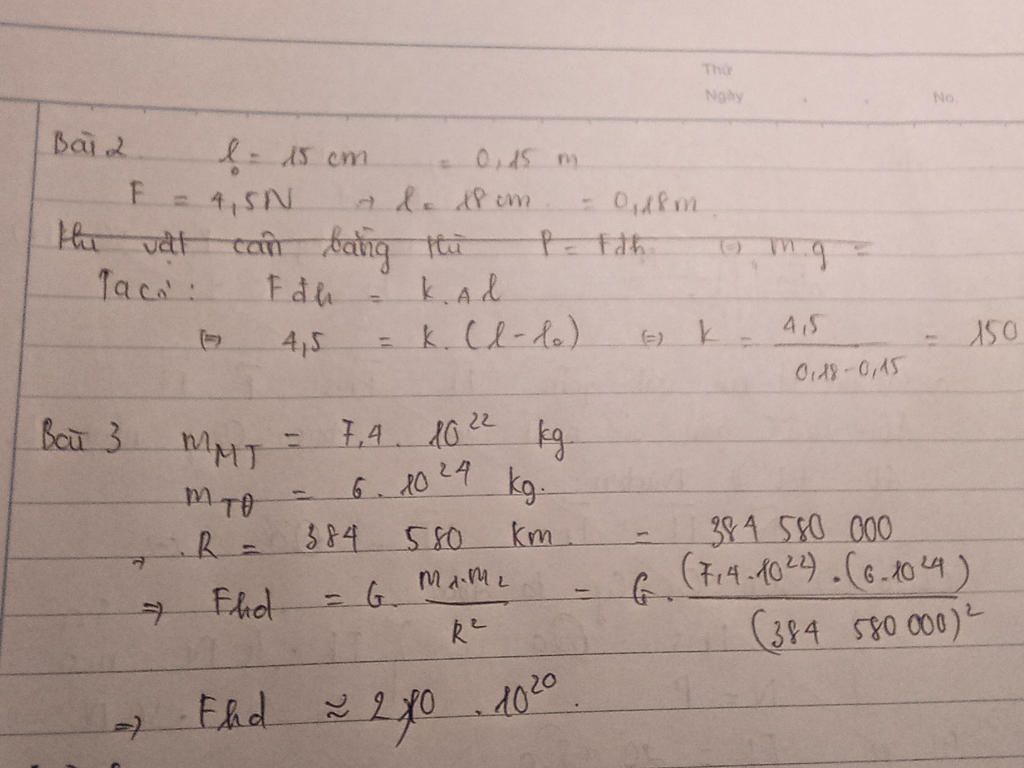 Thứ
Ngày . . No.
Bài 2 l₀ = 15 cm = 0,15 m
F = 4,5N → l = 18 cm = 0,18m
Khi vật cân bằng thì P = Fđh (=) m.g =
Ta có: Fđh = k.Δl
(=) 4,5 = k.(l-l₀) (=) k = 4,5 / (0,18-0,15) = 150
Bài 3 m_MT = 7,4. 10²² kg
m_TĐ = 6.10²⁴ kg.
→ R = 384 580 km = 384 580 000
=> Fhd = G. m₁.m₂ / R² = G. (7,4.10²²).(6.10²⁴) / (384 580 000)²
=> Fhd ≈ 2,0 .10²⁰.